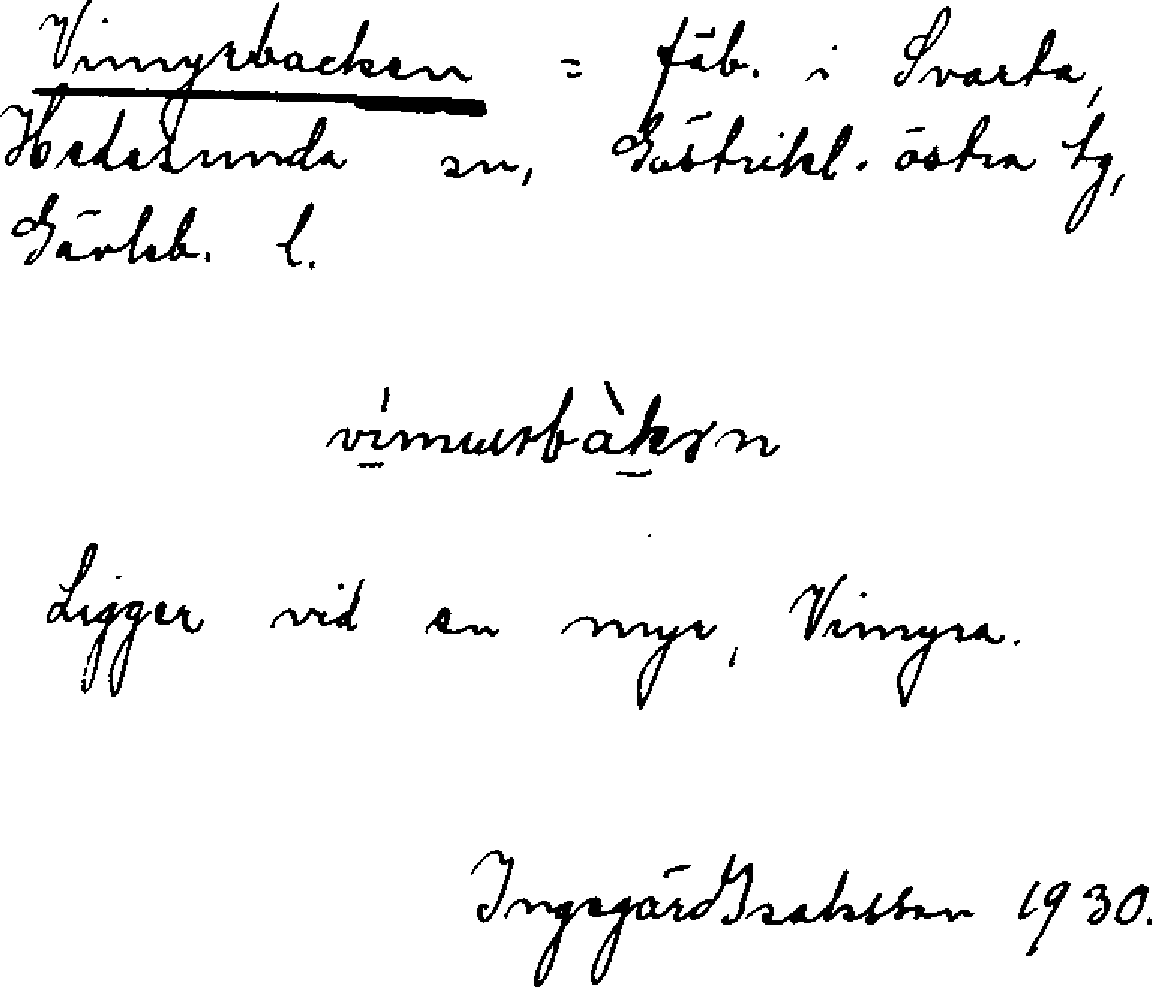 Vimyrbacken = fäb. i Svarta,
Hedesunda sn, Gästrikl. östra tg,
Gävleb. l.
Ligger vid en myr, Vimyra.
Ingegärd Isaksson 1930.